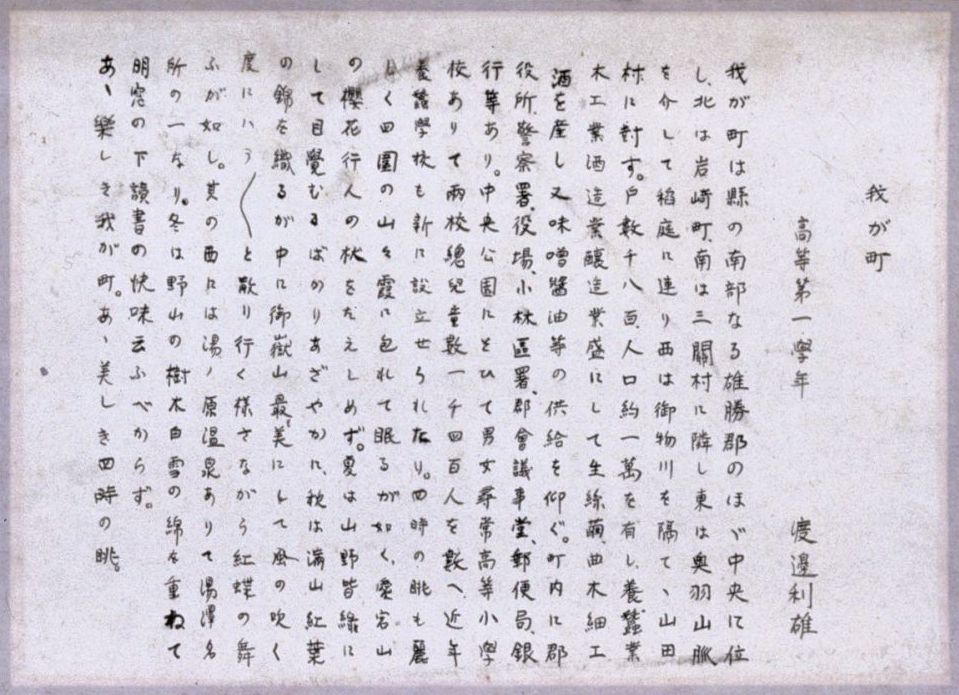 我が町
高等第一學年　渡邊利雄
我が町は縣の南部なる雄勝郡のほゞ中央に位
し、北は岩崎町、南は三關村に隣し東は奥羽山脈
を介して稻庭に連り西は御物川を隔てゝ山田
村に對す。戸數千八百、人口約一萬を有し、養蠶業
木工業酒造業釀造業盛にして生絲繭、曲木細工
酒を産し又味噌醤油等の供給を仰ぐ。町内に郡
役所、警察署、役場、小林區署、郡會議事堂、郵便局、銀
行等あり。中央公園にそひて男女尋常高等小學
校ありて兩校總兒童數一千四百人を數へ近年
養蠶學校も新に設立せられたり。四時の眺も麗
しく四圍の山々霞に包れて眠るが如く、愛宕山
の櫻花行人の杖をたえしめず。夏は山野皆緑に
して目覺むるばかりあざやかに、秋は滿山紅葉
の錦を織るが中に御嶽山最も美にして風の吹く
度にハラ〳〵と散り行く樣さながら紅蝶の舞
ふが如し。其の西には湯ノ原温泉ありて湯澤名
所の一なり。冬は野山の樹木白雪の綿を重ねて
明窓の下讀書の快味云ふべからず。
あゝ樂しき我が町。あゝ美しき四時の眺。